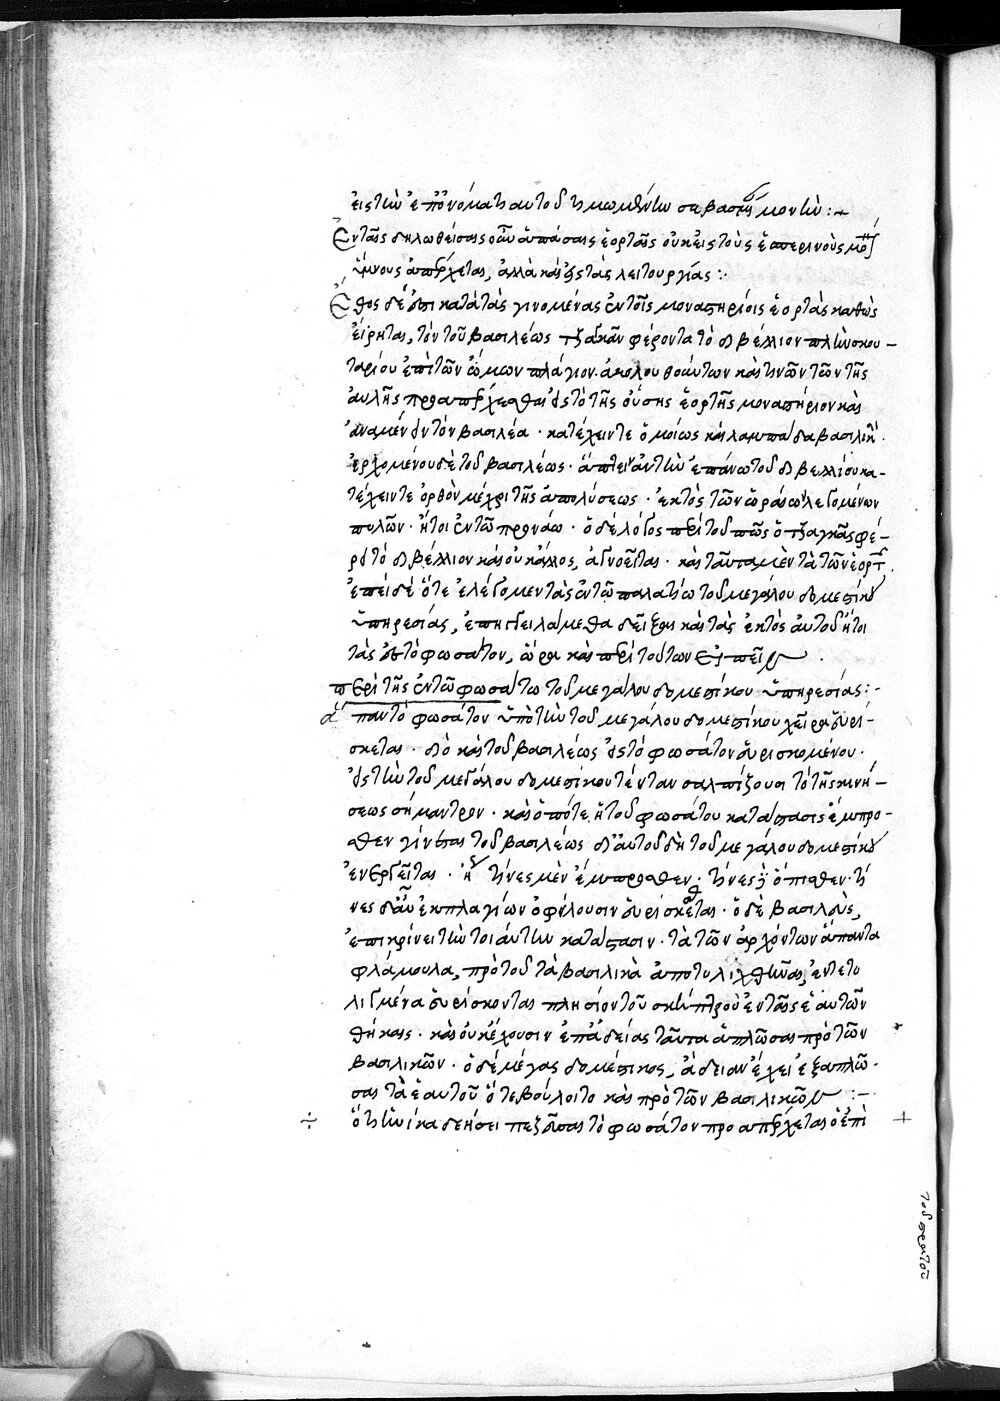 εἰς τὴν ἐπ' ὀνόματι αὐτοῦ τιμωμένην σεβασμίαν μονήν :+
Ἐν ταῖς δηλωθείσαις οὖν ἁπάσαις ἑορταῖς οὐκ εἰς τοὺς ἑσπερινοὺς μό
ὕμνους ἀπέρχεται, ἀλλὰ καὶ εἰς τὰς λειτουργίας :
Ἔθος δέ ἐστι κατὰ τὰς γινομένας ἐν τοῖς μοναστηρίοις ἑορτὰς καθὼς
εἴρηται, τὸν τοῦ βασιλέως τζακᾶν φέροντα τὸ διβέλλιον πλὴν σκου-
ταρίου ἐπὶ τῶν ὤμων πλάγιον. ἀκολουθούντων καί τινων τῶν τῆς
αὐλῆς προαπέρχεσθαι εἰς τὸ τῆς οὔσης ἑορτῆς μοναστήριον καὶ
ἀναμένειν τὸν βασιλέα · κατέχειν τε ὁμοίως καὶ λαμπάδα βασιλικήν ·
ἐρχομένου δὲ τοῦ βασιλέως · ἅπτειν αὐτὴν ἐπάνω τοῦ διβελλίου κα-
τέχειν τε ὀρθὸν μέχρι τῆς ἀπολύσεως · ἐκτὸς τῶν ὡραίων λεγομένων
πυλῶν · ἤτοι ἐν τῷ προνάῳ · ὁ δὲ λόγος περὶ τοῦ πῶς ὁ τζαγκᾶς φέ-
ρει τὸ διβέλλιον καὶ οὐκ ἄλλος, ἀγνοεῖται · καὶ ταῦτα μὲν τὰ τῶν ἑορτ
ἐπεὶ δέ ὅτε ἐλέγομεν τὰς ἐν τῷ παλατίῳ τοῦ μεγάλου δομεστίκου
ὑπηρεσίας, ἐπηγγειλάμεθα δεῖξαι καὶ τὰς ἐκτὸς αὐτοῦ ἤτοι
τὰς εἰς τὸ φωσάτον, ὥρα καὶ περὶ τούτων εἰπεῖν .
περὶ τῆς ἐν τῷ φωσάτῳ τοῦ μεγάλου δομεστίκου ὑπηρεσίας :-
ἅπαν τὸ φωσάτον ὑπὸ τὴν τοῦ μεγάλου δομεστίκου χεῖρα εὑρί-
σκεται · διὸ καὶ τοῦ βασιλέως εἰς τὸ φωσάτον εὑρισκομένου ·
εἰς τὴν τοῦ μεγάλου δομεστίκου τένταν σαλπίζουσι τὸ τῆς κινή-
σεως σήμαντρον · καὶ ὁπότε ἡ τοῦ φωσάτου κατάστασις ἔμπρο-
σθεν γίνεται τοῦ βασιλέως δι' αὐτοῦ δὴ τοῦ μεγάλου δομεστίκου
ἐνεργεῖται · τίνες μὲν ἔμπροσθεν · τίνες δ' ὄπισθεν · τί
νες δ' αὖ ἐκ πλαγίων ὀφείλουσιν εὑρίσκεσθαι · ὁ δὲ βασιλεὺς,
ἐπικρίνει τὴν τοιαύτην κατάστασιν · τὰ τῶν ἀρχόντων ἅπαντα
φλάμουλα, πρὸ τοῦ τὰ βασιλικὰ ἀποτυλιχθῆναι, ἐντετυ
λιγμένα εὑρίσκονται πλησίον τοῦ σκήπτρου ἐν ταῖς ἑαυτῶν
θήκαις · καὶ οὐκ ἔχουσιν ἐπ' ἀδείας ταῦτα ἁπλῶσαι πρὸ τῶν
βασιλικῶν · ὁ δὲ μέγας δομέστικος, ἄδειαν ἔχει ἐξαπλῶ-
σαι τὰ ἑαυτοῦ ὅτε βούλοιτο καὶ πρὸ τῶν βασιλικῶν :-
ὅτι ἡνίκα δεήσει πεζεῦσαι τὸ φωσάτον προαπέρχεται ὁ ἐπὶ
τοῦ στρατοῦ